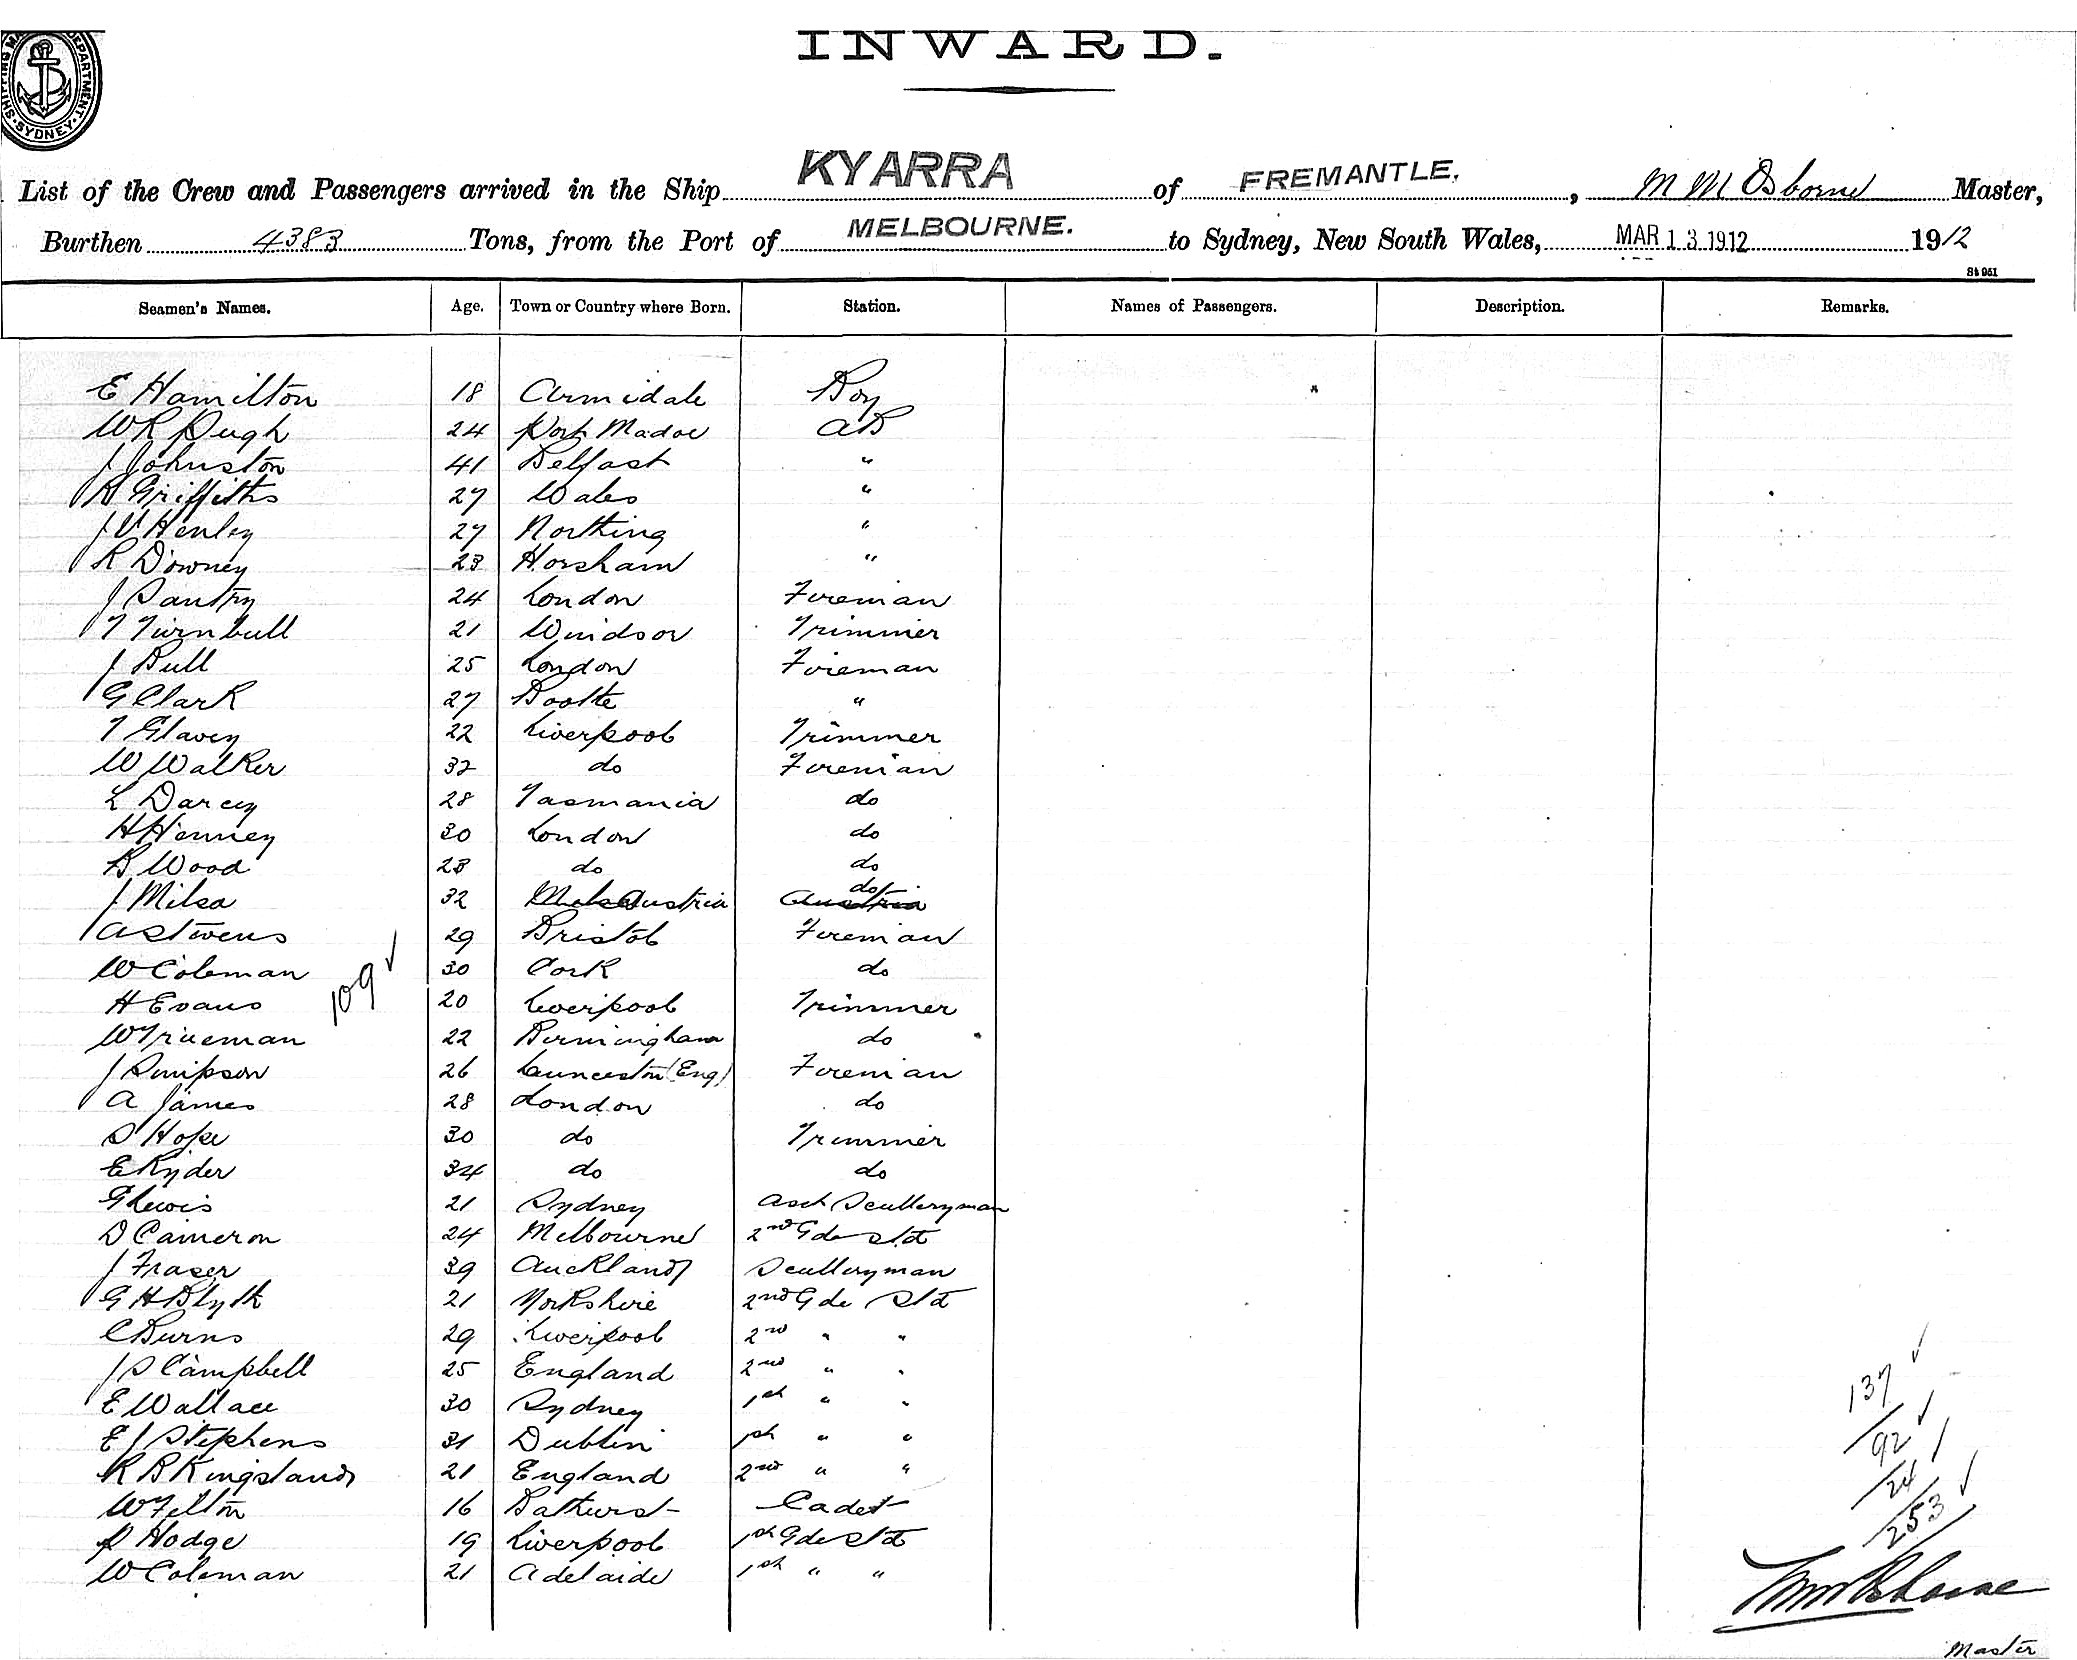 INWARD.
SHIPPING MA DEPARTMENT SYDNEY
List of the Crew and Passengers arrived in the Ship KYARRA of FREMANTLE, M M Osborne Master,
Burthen 4383 Tons, from the Port of MELBOURNE. to Sydney, New South Wales, MAR 13 1912 1912
St 951
Seamen's Names. Age. Town or Country where Born. Station. Names of Passengers. Description. Remarks.
E Hamilton 18 Armidale Boy
W R Pugh 24 Port Madoc AB
J Johnston 41 Belfast "
R Griffiths 27 Wales "
J V Henley 27 "
R Downey 23 Horsham "
J Santry 24 London Fireman
T Turnbull 21 Windsor Trimmer
J Bull 25 London Fireman
G Clark 27 Bootle "
T Glavey 22 Liverpool Trimmer
W Walker 32 do Fireman
L Darcey 28 Tasmania do
H Henney 30 London do
B Wood 23 do do
J Milsa 32 Austria Austria do
A Stwens 29 Bristol Fireman
W Coleman 30 Cork do
109
H Evans 20 Liverpool Trimmer
W Trueman 22 Birmingham do
J Simpson 26 Launceston (Eng) Fireman
A James 28 London do
S Hope 30 do Trimmer
E Ryder 34 do do
G Lewis 21 Sydney Asst Sculleryman
D Cameron 24 Melbourne 2nd Gde Std
J Fraser 39 Auckland Sculleryman
G H Blyth 21 Yorkshire 2nd Gde Std
C Burns 29 Liverpool 2nd " "
J S Campbell 25 England 2nd " "
E Wallace 30 Sydney 1st " "
E J Stephens 31 Dublin 1st " "
R B Kingsland 21 England 2nd " "
W Felton 16 Bathurst Cadet
P Hodge 19 Liverpool 1st Gde Std
W Coleman 21 Adelaide 1st " "
137
92
24
253
M M Osborne
Master